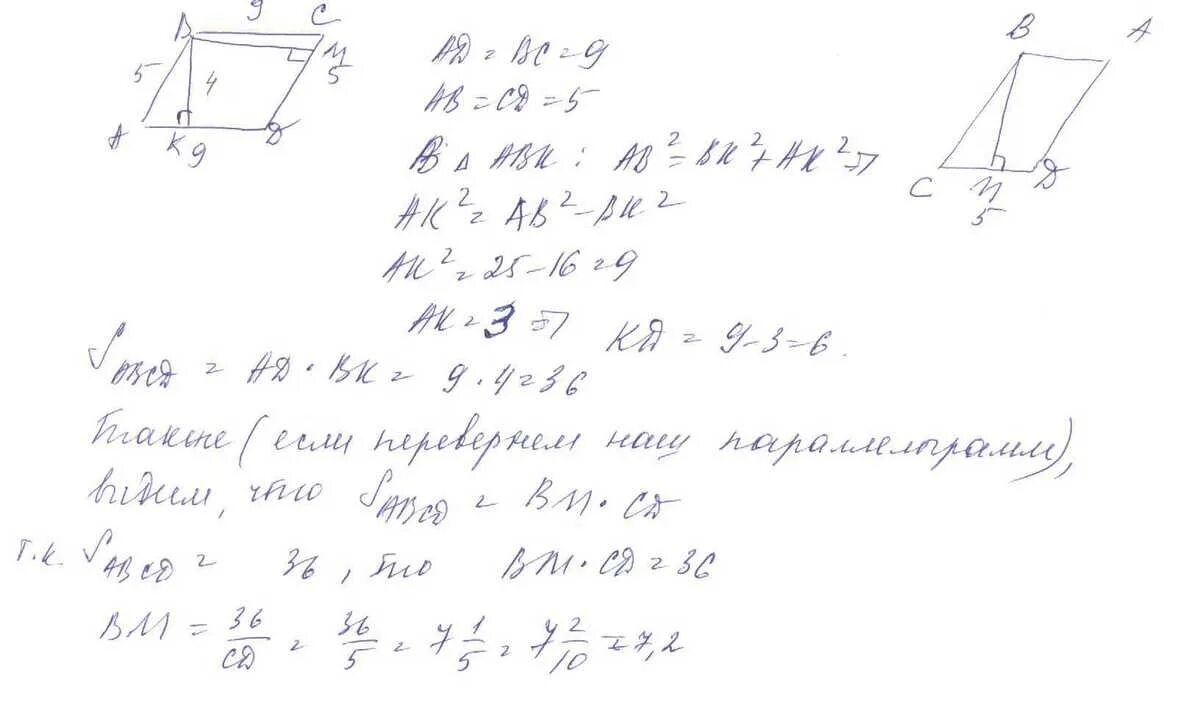 9
B C
M
5 4 5
A K 9 D
AD = BC = 9
AB = CD = 5
В △ ABK : AB² = BK² + AK² ⇒
AK² = AB² - BK²
AK² = 25 - 16 = 9
AK = 3 ⇒ KD = 9 - 3 = 6.
B A
C M D
5
S ABCD = AD · BK = 9 · 4 = 36
Также (если перевернем наш параллелограмм),
видим, что S ABCD = BM · CD
т.к. S ABCD = 36, то BM · CD = 36
BM = 36/CD = 36/5 = 7 1/5 = 7 2/10 = 7,2